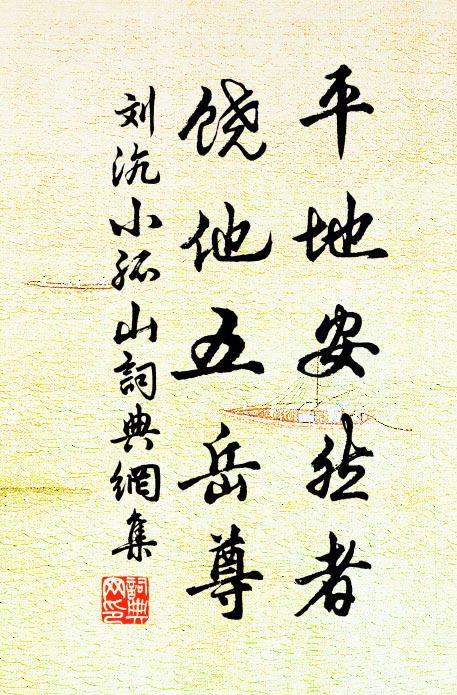 平地安然者
饶他五岳尊
刘沆小孤山詞典網集
詞典网印